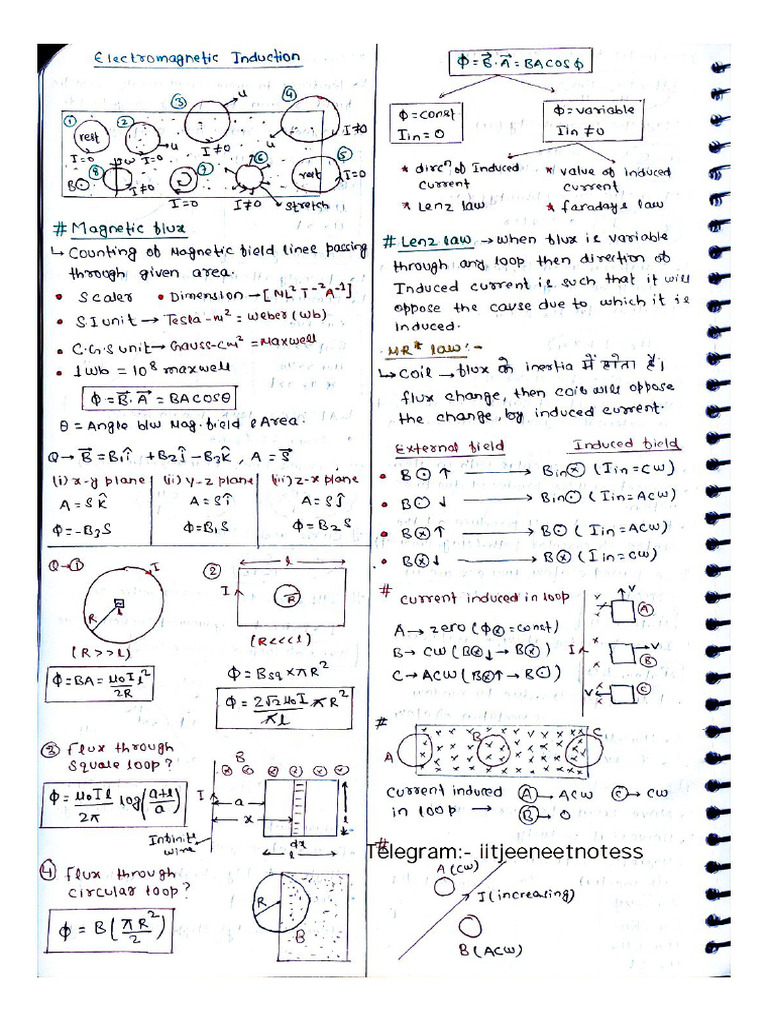 Electromagnetic Induction
① ② ③ ④
rest u u u I≠0
I=0 I=0 I≠0
⑧ ω ⑦ ⑥ ⑤
B⊙ I≠0 I=0 I≠0 rest I=0
stretch
# Magnetic flux
↳ Counting of Magnetic field lines passing
through given area.
• Scaler • Dimension → [ML²T⁻²A⁻¹]
• S.I unit → Testa-m² = Weber (wb)
• C.G.S unit → Gauss-cm² = Maxwell
• 1 wb = 10⁸ maxwell
Φ = B⃗.A⃗ = BACosθ
θ = Angle b/w Mag. field & Area.
Q → B⃗ = B₁î + B₂ĵ - B₃k̂, A = S⃗
(i) x-y plane (ii) y-z plane (iii) z-x plane
A = S k̂ A = S î A = S ĵ
Φ = -B₃S Φ = B₁S Φ = B₂S
Q → ① I ② l
R l I R
(R>>l) (R<<<l)
Φ = BA = μ₀Il²/2R
Φ = Bsq × πR²
Φ = 2√2 μ₀I/πl πR²
③ Flux through
square loop?
Φ = μ₀Il/2π log(a+l/a)
B
I a x l
dx
l
Infinite
wire
④ Flux through
circular loop?
Φ = B(πR²/2)
R B
Φ = B⃗.A⃗ = BACosΦ
Φ = const Φ = variable
Iin = 0 Iin ≠ 0
* dircⁿ of Induced * value of induced
current current
* Lenz law * faradays law
# Lenz law → when flux is variable
through any loop then direction of
Induced current is such that it will
oppose the cause due to which it is
induced.
MR* law :-
↳ coil → flux के inertia में होता है,
flux change, then coil will oppose
the change, by induced current.
External field Induced field
• B⊙↑ → Bin⊗ (Iin = CW)
• B⊙↓ → Bin⊙ (Iin = ACW)
• B⊗↑ → B⊙ (Iin = ACW)
• B⊗↓ → B⊗ (Iin = CW)
# current induced in loop
A → zero (Φ⊗ = const)
B → CW (B⊗↓ → B⊗)
C → ACW (B⊗↑ → B⊙)
I V A
V B
V C
#
A B C
current induced Ⓐ → ACW Ⓒ → CW
in loop → Ⓑ → 0
#
Telegram:- iitjeeneetnotess
A (CW)
I (increasing)
B (ACW)